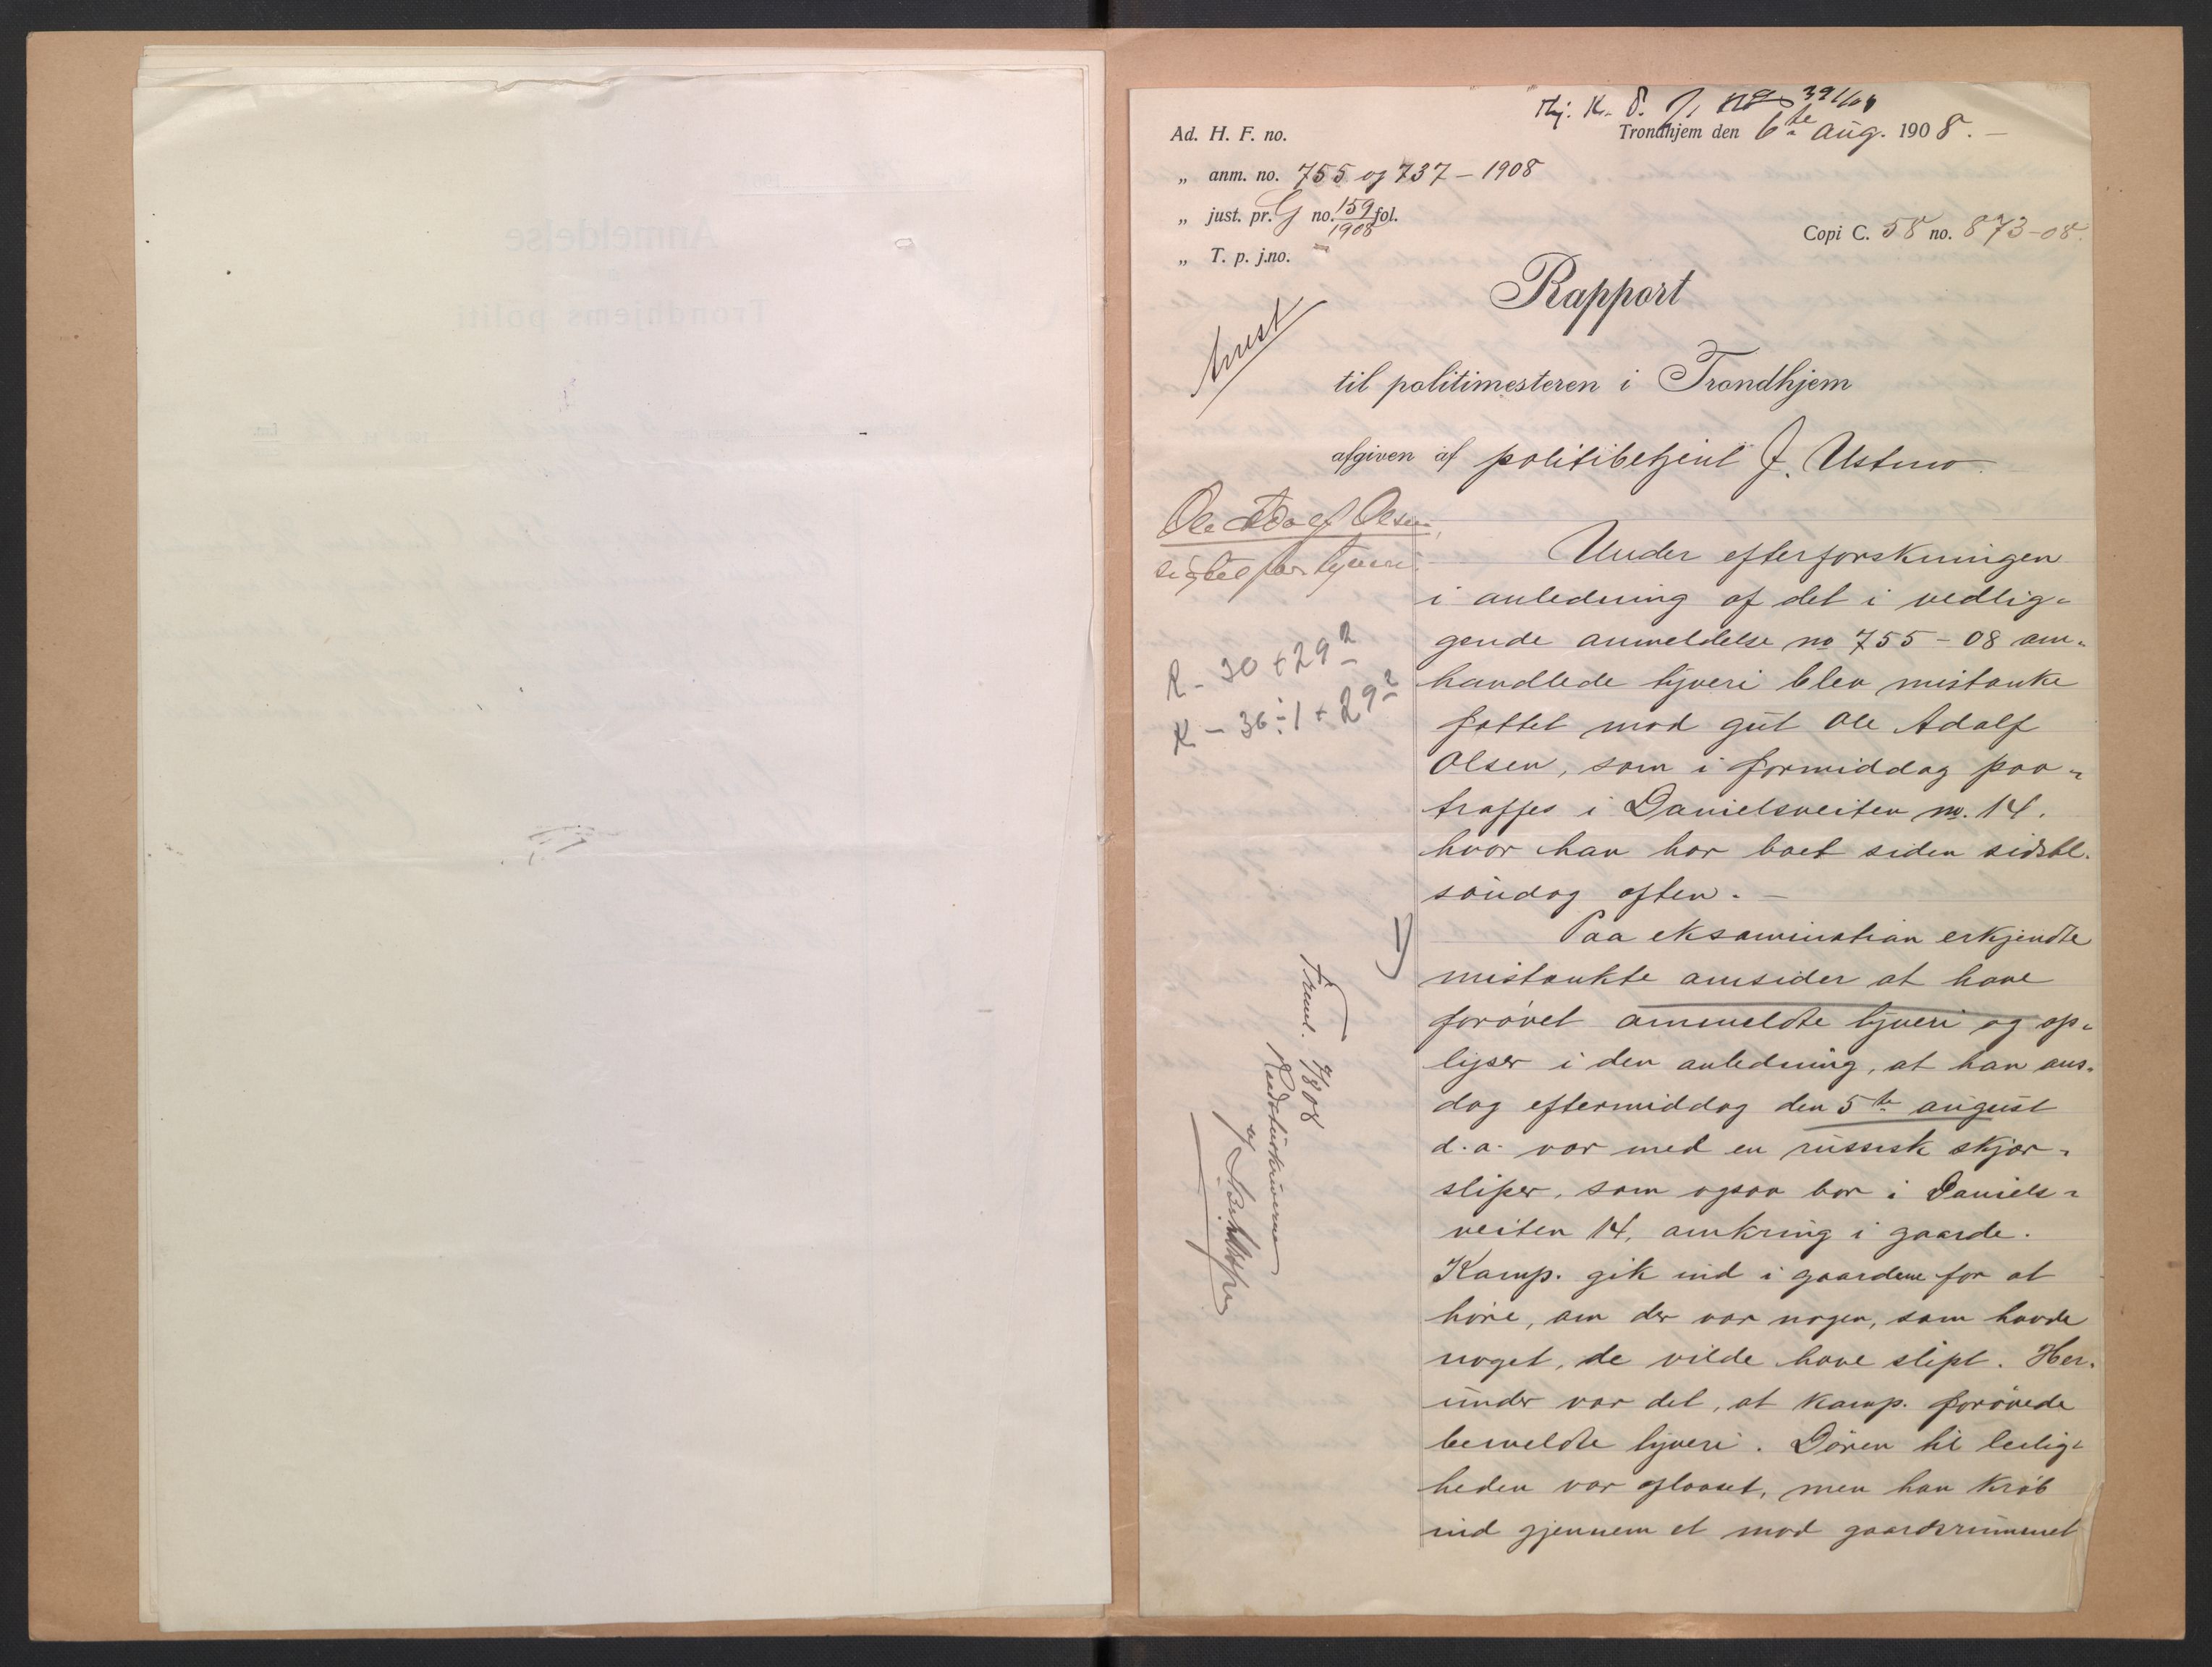 Thj. K. S. J. No 391/08
Ad. H. F. no.
Trondhjem den 6te aug. 1908. –
„ anm. no. 755 og 737 – 1908
„ just. pr. G no. 159/1908 fol.
Copi C. 58 no. 873-08.
„ T. p. j.no.
Rapport
Arrest
til politimesteren i Trondhjem
afgiven af politibetjent J. Ustmo.
Ole Adolf Olsen,
sigtet for tyveri.
R – 30 + 29 2
K – 36 ÷ 1 + 29 2
Under efterforskningen
i anledning af det i vedlig-
gende anmeldelse no 755 – 08 om-
handlede tyveri blev mistanke
fattet mod gut Ole Adolf
Olsen, som i formiddag paa-
traffes i Danielsveiten no. 14.
hvor han har boet siden sidstl.
søndag aften. –
Paa eksamination erkjendte
mistænkte omsider at have
forøvet anmeldte tyveri og op-
lyser i den anledning, at han ons-
dag eftermiddag den 5te august
d. a. var med en russisk skjær-
sliper, som ogsaa bor i Daniels-
veiten 14, omkring i gaarde.
Komp. gik ind i gaardene for at
høre, om der var nogen, som havde
noget, de vilde have slipt. Her-
under var det, at komp. forøvede
bemeldte tyveri. Døren til leilig-
heden var aflaaset, men han krøb
ind gjennem et mod gaardsrummet
Freml. 7/8 08
af
Anmeldelse
Trondhjems politi